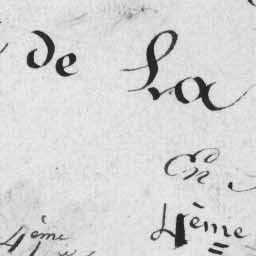 de La
En
4ème
4ème